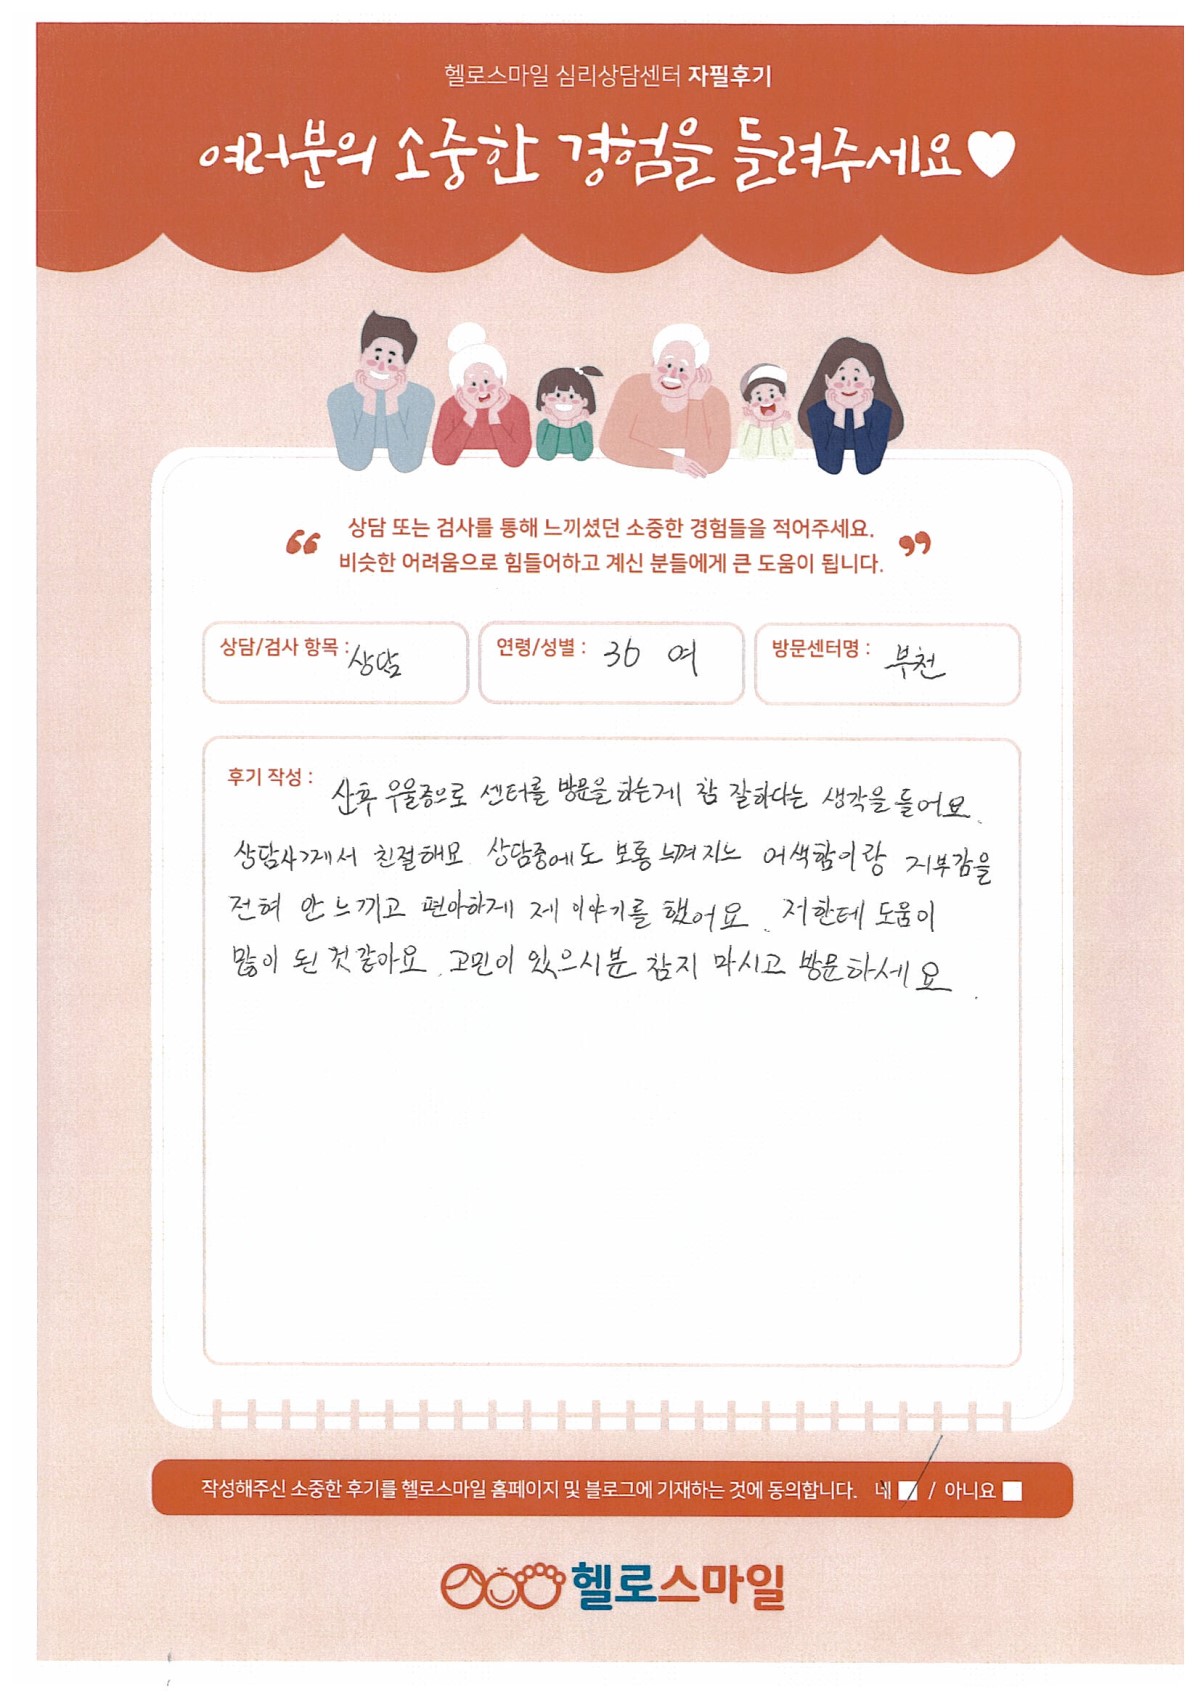 헬로스마일 심리상담센터 자필후기
여러분의 소중한 경험을 들려주세요♥
“ 상담 또는 검사를 통해 느끼셨던 소중한 경험들을 적어주세요.
비슷한 어려움으로 힘들어하고 계신 분들에게 큰 도움이 됩니다. ”
상담/검사 항목 : 상담 연령/성별 : 36 여 방문센터명 : 부천
후기 작성 : 산후 우울증으로 센터를 방문을 하는게 참 잘하다는 생각을 들어요.
상담사께서 친절해요. 상담중에도 보통 느껴지느 어색함이랑 거부감을
전혀 안 느끼고 편아하게 제 이야기를 했어요. 저한테 도움이
많이 된 것 같아요. 고민이 있으시분 참지 마시고 방문하세요.
작성해주신 소중한 후기를 헬로스마일 홈페이지 및 블로그에 기재하는 것에 동의합니다. 네 / 아니요
헬로스마일